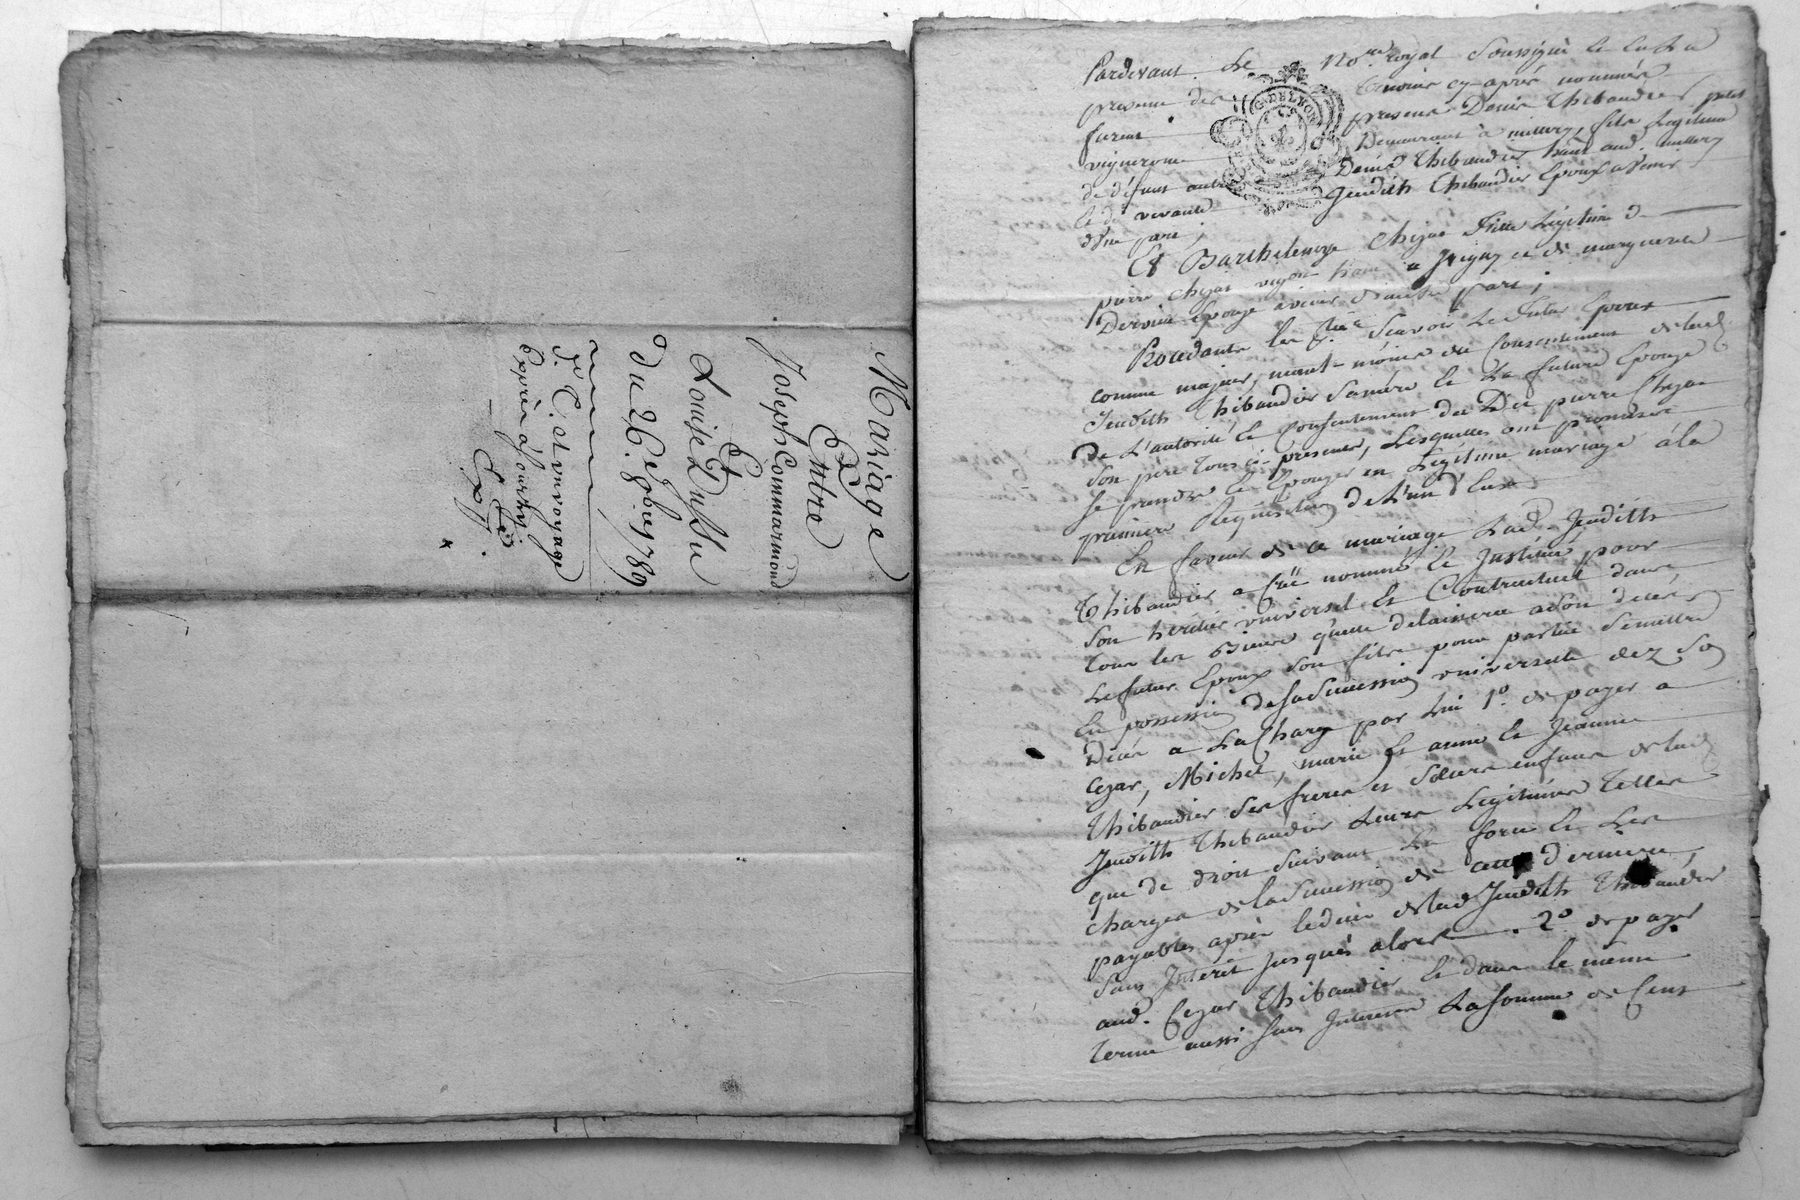 Mariage
Entre
Joseph Commarmond
Et
Louise Dussu
du 26e 8bre 1789
d. C. et un voyage
Exprès à
Exp.
Pardevant Le Nore royal Soussigné et en La
presence des temoins cy-après nommés
furent G. DE LYON presens Denis Thibaudier petit
vigneron Demeurant à millery, fils Legitime
de défunt autre Denis Thibaudier hant aud. millery
et de vivante Jeudith Thibaudier Epoux avenir
d'Une part,
Et Barthelemye Chizat fille Légitime de
pierre Chizat vigon hant a Irigny et de marguerite
Dervieu Epouze avenir d'autre part;
Procedants les pties Scavoir Le futur Epoux
comme majeur, neant-moins du Consentement de lad.
Jeudith Thibaudier Sa mère et La future Epouze
De L'autorité et Consentement dud. pierre Chizat
Son père tous ici presents, Lesquelles ont promis
Se prendre et Epouzer en Légitime mariage à la
premiere Requisition de L'un d'Eux
En faveur de ce mariage Lad. Jeudith
Thibaudier a Créé nommé et Institué pour
Son héritier universel et Contractuel dans
tous les Biens qu'elle delaissera a Son décès
Le futur Epoux Son fils pour par lui Se mettre
En possession de sa Succession universelle dez Son
Décès a La Charge par Lui 1º. de payer a
Cezar, Michel, marie et anne et Jeanne
Thibaudier Ses freres et Sœurs enfans de lad.
Jeudith Thibaudier Leurs Legitimes telles
que de droit Suivant La force et Les
charges de la Succession de cette derniere,
payables après le décès de lad. Jeudith Thibaudier
Sans Interêt Jusques alors. 2º de payer
aud. Cezar Thibaudier et dans le même
terme aussi Sans Interets La Somme de Cent